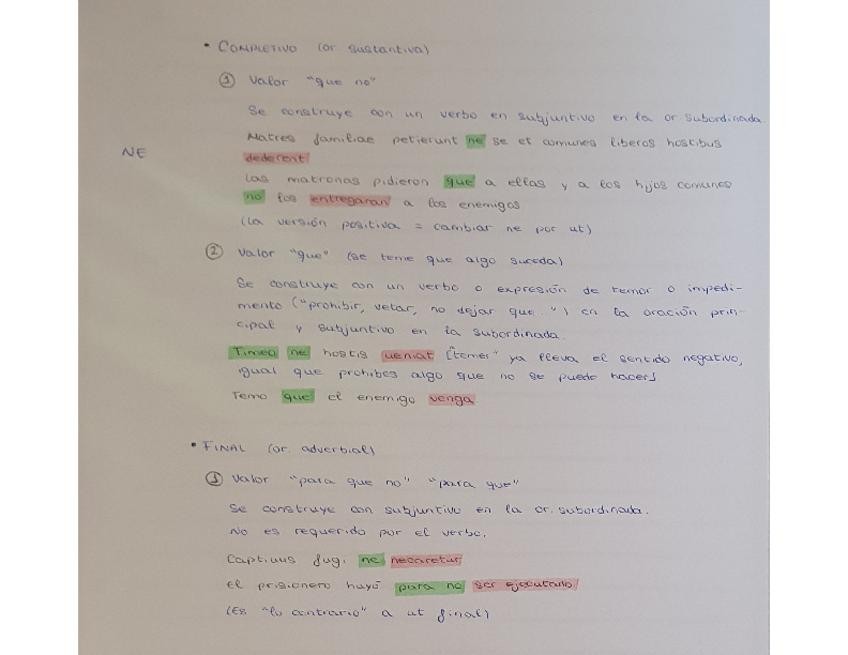 • COMPLETIVO (or sustantiva)
① Valor "que no"
Se construye con un verbo en subjuntivo en la or subordinada.
Matres familiae petierunt ne se et comunes liberos hostibus
NE
dederent
Las matronas pidieron que a ellas y a los hijos comunes
no los entregaran a los enemigos
(la versión positiva = cambiar ne por ut)
② Valor "que" (se teme que algo suceda)
Se construye con un verbo o expresión de temor o impedi-
mento ("prohibir, vetar, no dejar que...") en la oración prin-
cipal y subjuntivo en la subordinada.
Timeo ne hostis ueniat ["temer" ya lleva el sentido negativo,
igual que prohibes algo que no se puede hacer]
Temo que el enemigo venga
• FINAL (or. adverbial)
① Valor "para que no" "para que"
Se construye con subjuntivo en la or. subordinada.
No es requerido por el verbo.
Captiuus fugi, ne necaretur
El prisionero huyó para no ser ejecutado
(Es "lo contrario" a ut final)